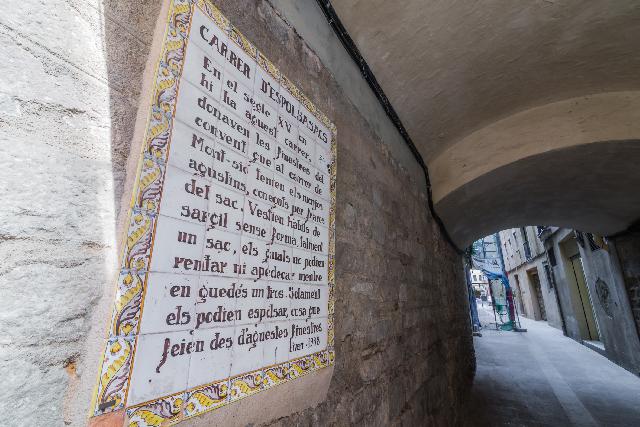 CARRER D'ESPOLSASACS
En el segle XV en
hi ha aquest carrer,
donaven les finestres del
convent que al carrer de
Mont-sió tenien els monjos
agustins, coneguts per frares
del sac. Vestien hàbits de
sargil sense forma, talment
un sac, els quals no podien
rentar ni apedaçar mentre
en quedés un tros. Solament
els podien espolsar, cosa que
feien des d'aquestes finestres